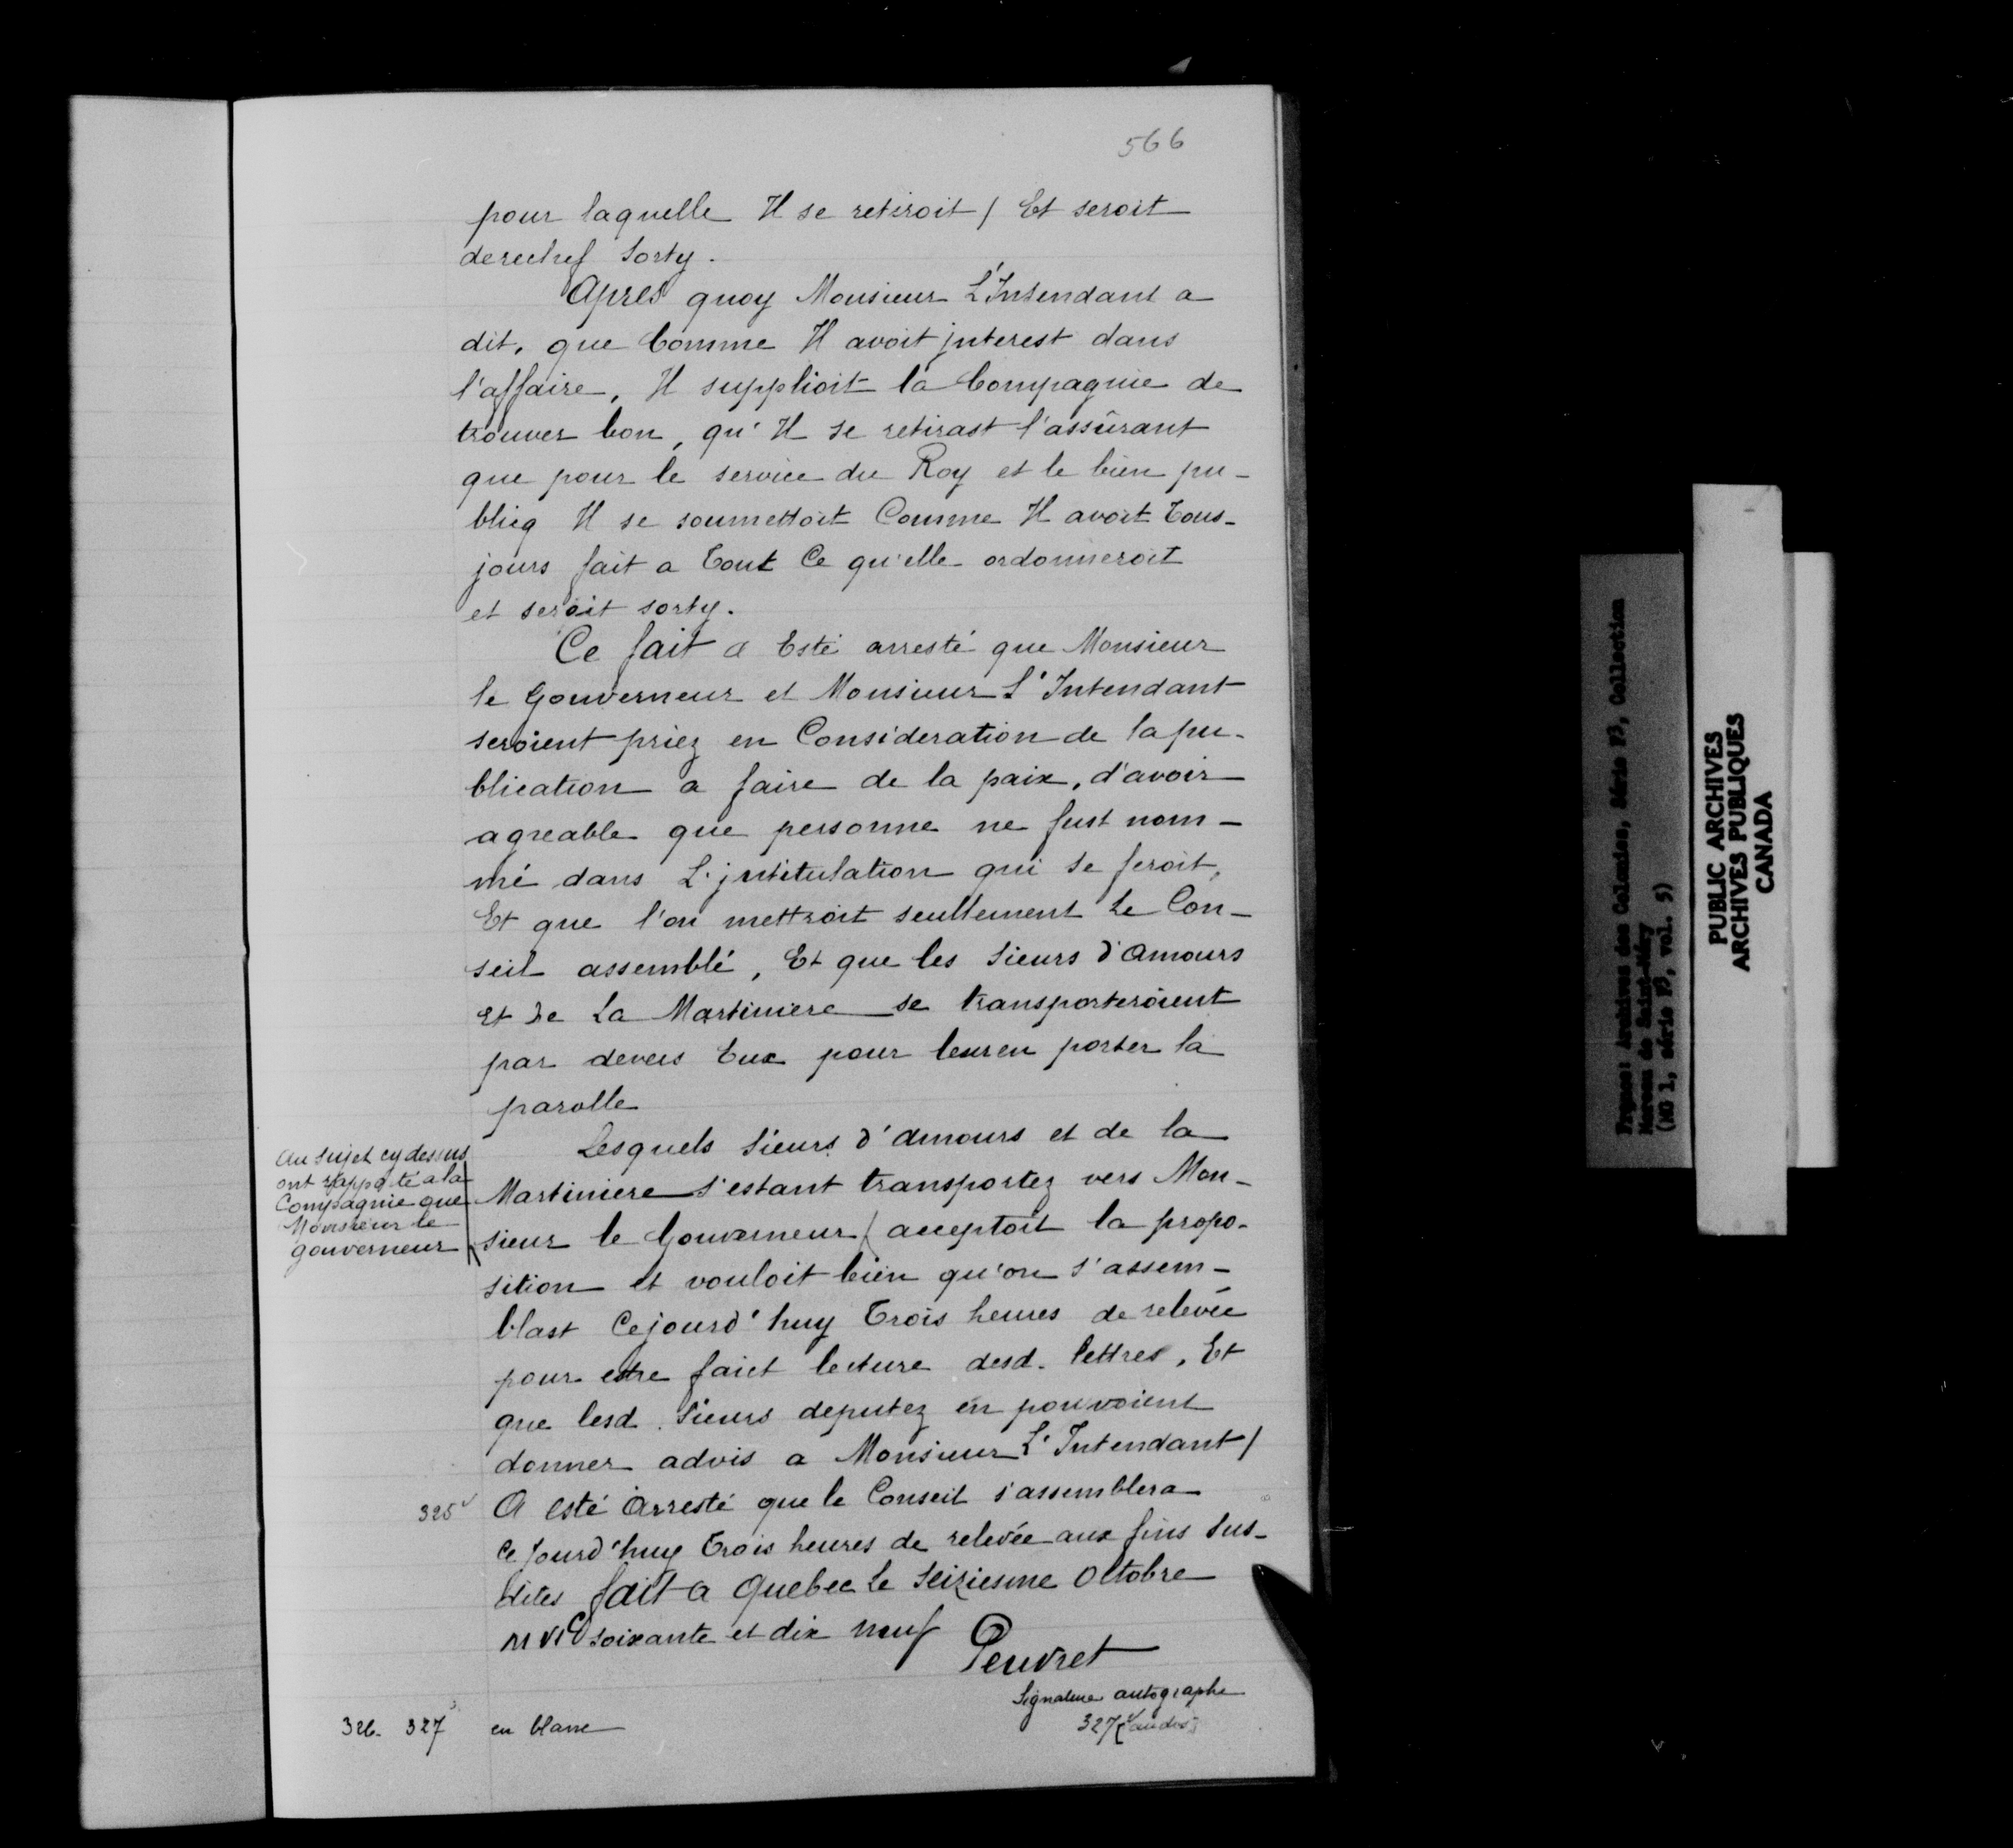 566
pour laquelle Il se retiroit / Et seroit
derechef sorty.
Apres quoy Monsieur L'Intendant a
dit, que Comme Il avoit jnterest dans
l'affaire, Il supplioit la Compagnie de
trouver bon, qu'Il se retirast l'assûrant
que pour le service du Roy et le bien pu-
blicq Il se soumettoit Comme Il avoit Tous-
jours fait a Tout Ce qu'elle ordonneroit
et seroit sorty.
Ce fait a Esté arresté que Monsieur
le Gouverneur et Monsieur L'Intendant
seroient priez en Consideration de la pu-
blication a faire de la paix, d'avoir
agreable que personne ne fust nom-
mé dans L'jntitulation qui se feroit,
Et que l'on mettroit seullement Le Con-
seil assemblé, Et que les Sieurs d'Amours
Et de La Martiniere se transporteroient
par devers Eux pour leur en porter la
parolle
Lesquels Sieurs d'Amours et de la
Martiniere s'estant transportez vers Mon-
sieur le Gouverneur / acceptoit la propo-
sition et vouloit bien qu'on s'assem-
blast Cejourd'huy Trois heures de relevée
pour estre faict lecture desd. lettres, Et
que lesd. Sieurs deputez en pouvoient
donner advis a Monsieur L'Intendant /
A esté Arresté que le Conseil s'assemblera
Ce jourd'huy Trois heures de relevée aux fins Sus-
dites fait a Quebec Le Seiziesme Octobre
M VIC soixante et dix neuf
Peuvret
Signature autographe
327v
au sujet cy dessus
ont rapporté a la
Compagnie que
Monsieur le
gouverneur
325v
326. 327 en blanc
France: Archives des Colonies, Série F3, Collection
Moreau de Saint-Méry
(MG 1, série F3, vol. 5)
PUBLIC ARCHIVES
ARCHIVES PUBLIQUES
CANADA